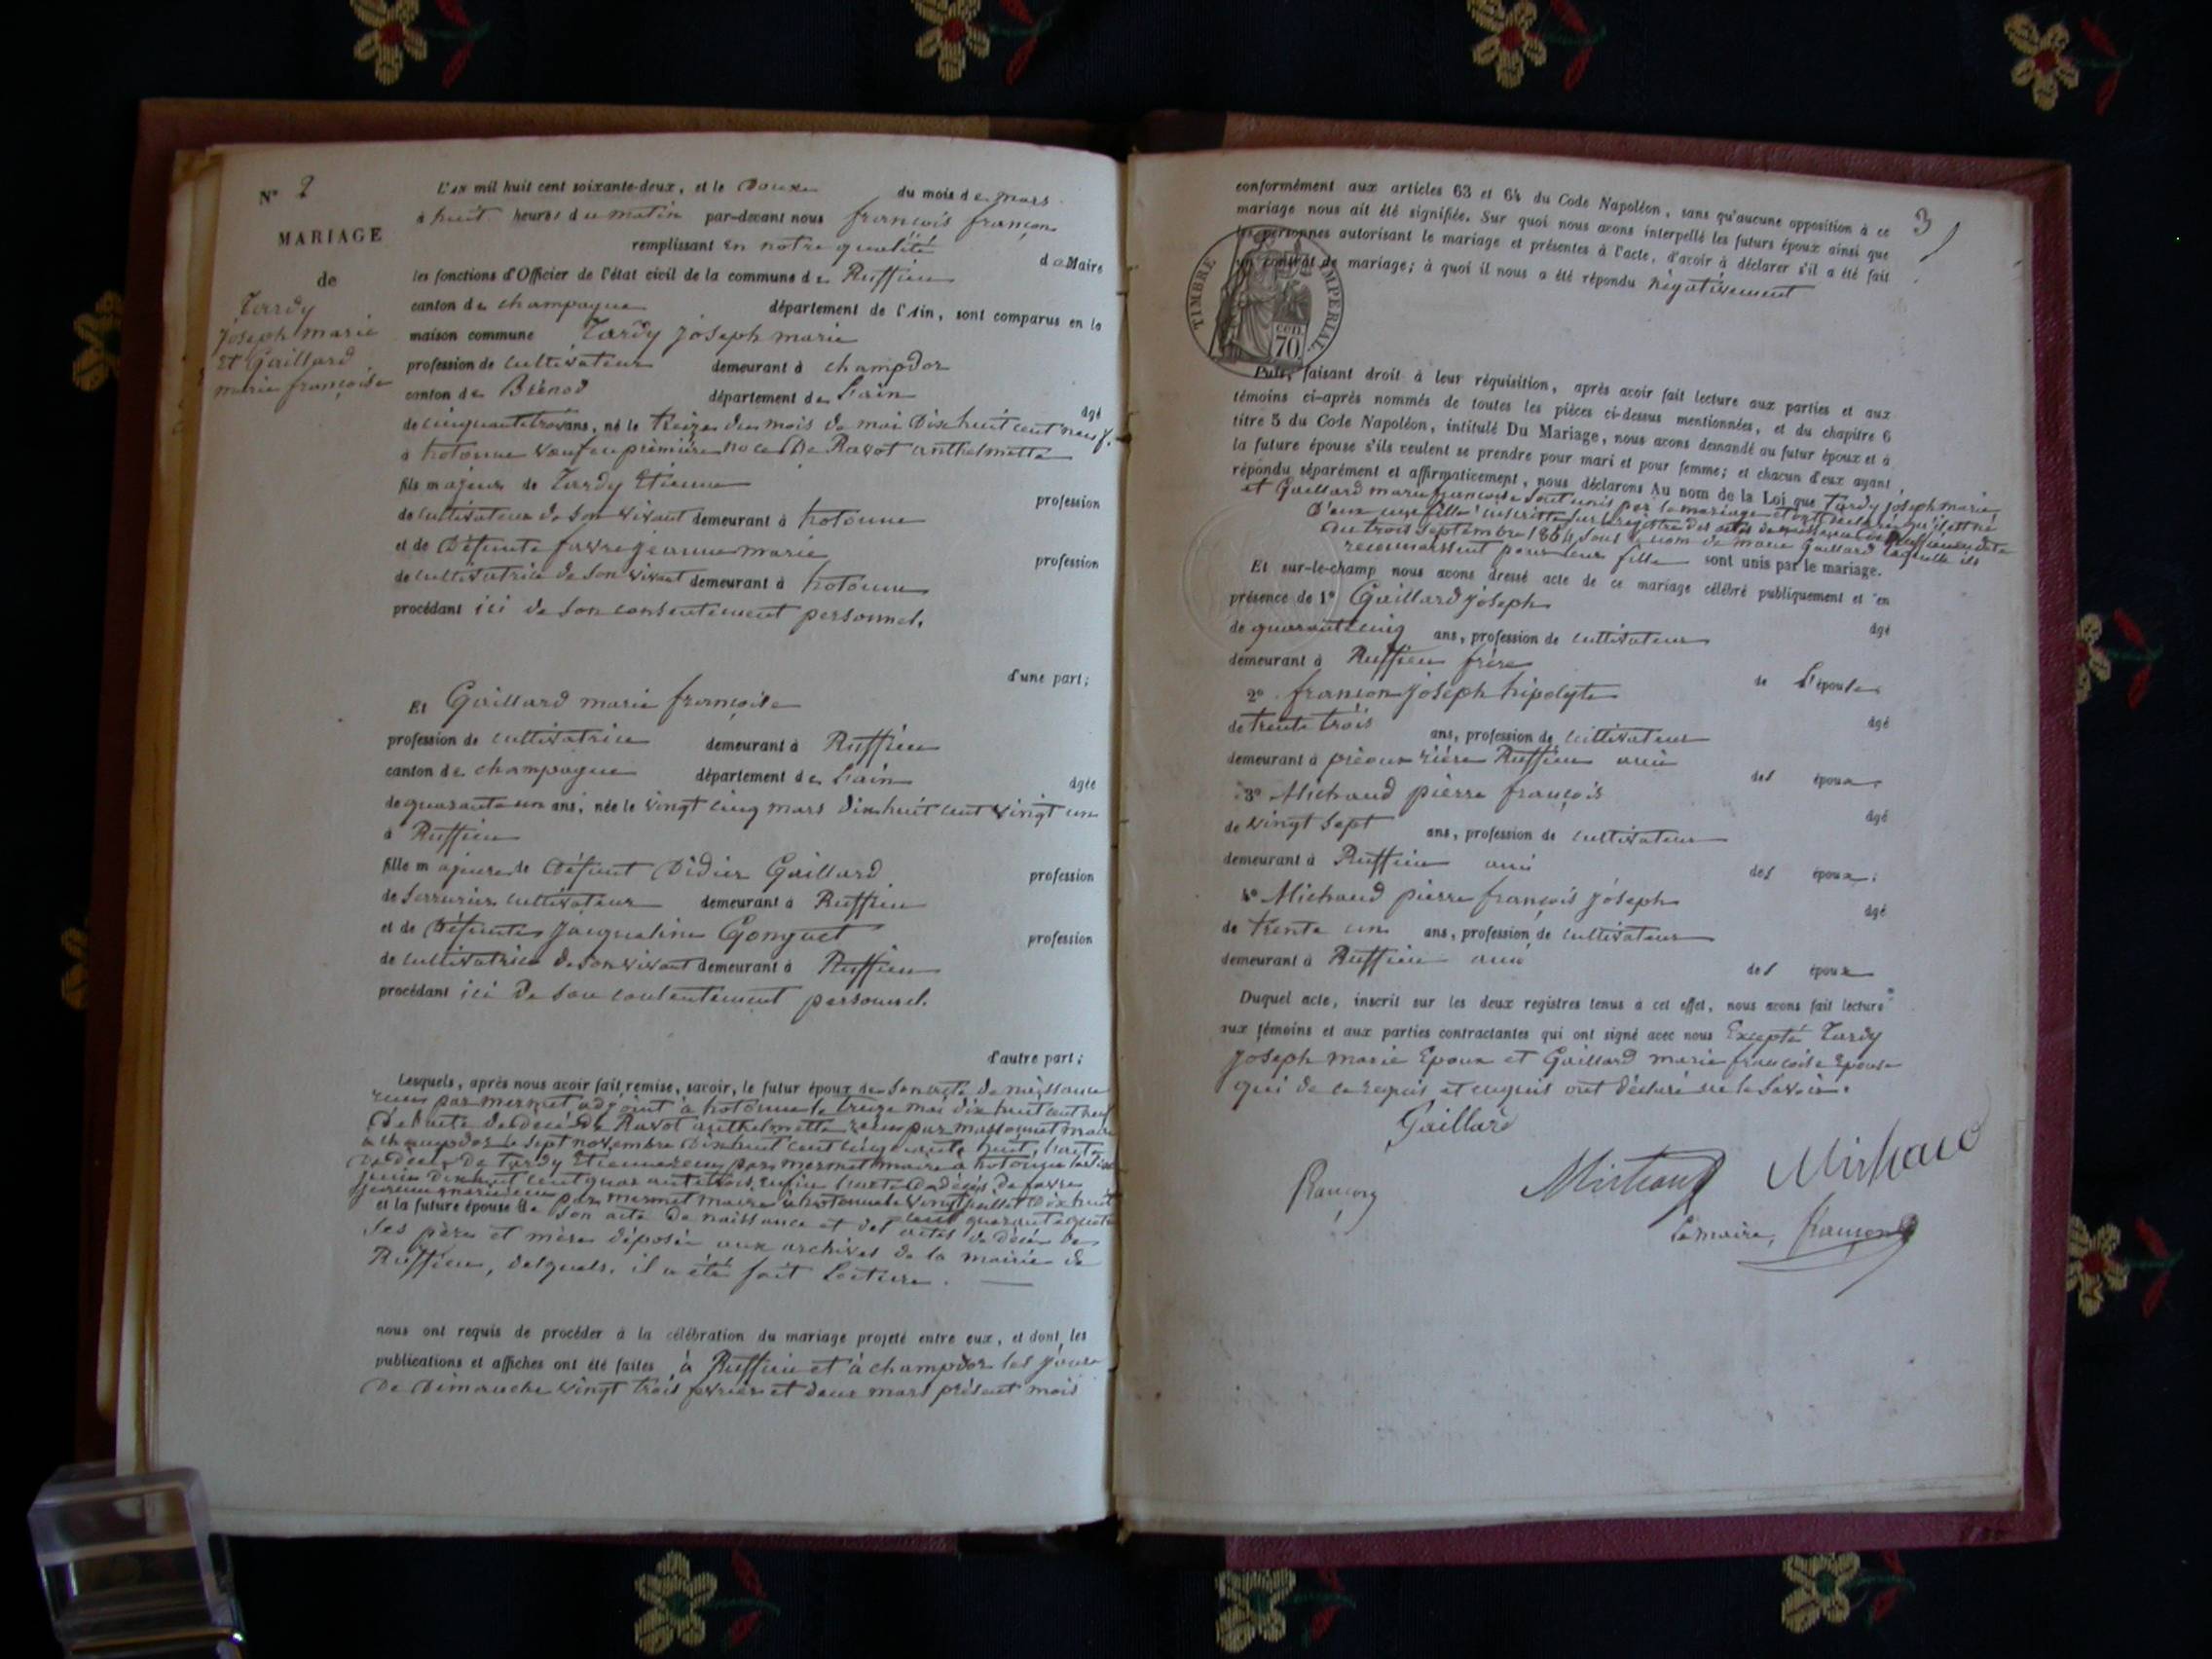 N° 2
MARIAGE
de
Tardy
Joseph marie
Et Gaillard
marie françoise
L'an mil huit cent soixante-deux, et le Douze du mois de mars
à huit heures du matin par-devant nous françois françon
remplissant en notre qualité de Maire
les fonctions d'Officier de l'état civil de la commune de Ruffieu
canton de champagne département de l'Ain, sont comparus en la
maison commune Tardy joseph marie
profession de cultivateur demeurant à champdor
canton de Brénod département de L'ain âgé
de cinquante trois ans, né le treize du mois de mai Dix huit cent neuf.
à hotonne veuf en première noce de Ravot anthelmette
fils majeur de Tardy Etienne profession
de cultivateur de son vivant demeurant à hotonne
et de Défunte favre jeanne marie profession
de cultivatrice de son vivant demeurant à hotonne
procédant ici de son consentement personnel.
d'une part;
Et Gaillard marie françoise
profession de cultivatrice demeurant à Ruffieu
canton de champagne département de L'ain âgée
de quarante un ans, née le vingt cinq mars dix huit cent vingt un
à Ruffieu
fille majeure de Défunt Didier Gaillard profession
de Serrurier cultivateur demeurant à Ruffieu
et de Défunte Jacqueline Gonguet profession
de cultivatrice de son vivant demeurant à Ruffieu
procédant ici de son contentement personnel.
d'autre part;
Lesquels, après nous avoir fait remise, savoir, le futur époux de Son acte de naissance
reçu par mermet adjoint à hotonne le treize mai dix huit cent neuf
De l'acte de décès de Ravot anthelmette reçu par massonnet maire
à champdor le sept novembre Dix huit cent cinquante huit, l'acte
de décès de Tardy Etienne reçu par mermet maire à hotonne
juin dix huit cent quarante trois, enfin l'acte de décès de favre
jeanne marie reçu par mermet maire à hotonne le vingt juillet Dix huit
cent quarante quatre
et la future épouse de Son acte de naissance et des actes de décès de
Ses père et mère déposés aux archives de la mairie de
Ruffieu, desquels, il a été fait Lecture.
nous ont requis de procéder à la célébration du mariage projeté entre eux, et dont les
publications et affiches ont été faites à Ruffieu et à champdor les jours
de Dimanche vingt trois février et deux mars présent mois
3
conformément aux articles 63 et 64 du Code Napoléon, sans qu'aucune opposition à ce
mariage nous ait été signifiée. Sur quoi nous avons interpellé les futurs époux ainsi que
les personnes autorisant le mariage et présentes à l'acte, d'avoir à déclarer s'il a été fait
un contrat de mariage; à quoi il nous a été répondu Négativement
TIMBRE IMPERIAL
cen.
70
Puis, faisant droit à leur réquisition, après avoir fait lecture aux parties et aux
témoins ci-après nommés de toutes les pièces ci-dessus mentionnées, et du chapitre 6
titre 5 du Code Napoléon, intitulé Du Mariage, nous avons demandé au futur époux et à
la future épouse s'ils veulent se prendre pour mari et pour femme; et chacun d'eux ayant
répondu séparément et affirmativement, nous déclarons Au nom de la Loi que Tardy joseph marie,
et Gaillard marie françoise Sont unis par le mariage et ont déclaré qu'il est né
D'eux une fille inscritte sur le registre des actes de naissance de Ruffieu en date
du trois Septembre 1861, sous le nom de marie Gaillard laquelle ils
reconnaissent pour leur fille sont unis par le mariage.
Et sur-le-champ nous avons dressé acte de ce mariage célébré publiquement et en
présence de 1° Gaillard joseph âgé
de quarante cinq ans, profession de cultivateur
demeurant à Ruffieu frère de L'épouse
2° françon joseph hipolyte âgé
de trente trois ans, profession de cultivateur
demeurant à Ruffieu ami des époux
3° Michaud pierre françois âgé
de vingt Sept ans, profession de cultivateur
demeurant à Ruffieu ami des époux.
4° Michaud pierre françois joseph âgé
de trente un ans, profession de cultivateur
demeurant à Ruffieu ami des époux
Duquel acte, inscrit sur les deux registres tenus à cet effet, nous avons fait lecture
aux témoins et aux parties contractantes qui ont signé avec nous Excepté Tardy
Joseph marie Epoux et Gaillard marie françoise Epouse
qui de ce requis et enquis ont déclaré ne le Savoir.
Gaillard
françon Michaud Michaud
Le maire, françon